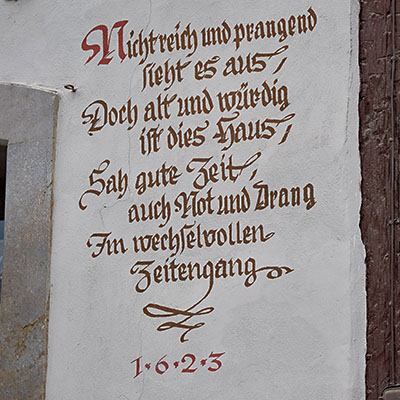 Nicht reich und prangend
sieht es aus,
Doch alt und würdig
ist dies Haus,
Sah gute Zeit,
auch Not und Drang
Im wechselvollen
Zeitengang
1·6·2·3